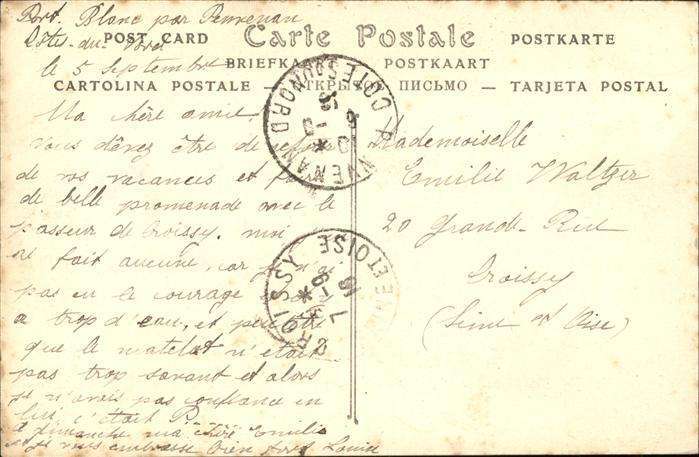 Port Blanc par Penvenan
Côtes-du-Nord
le 5 Septembre
POST CARD Carte Postale POSTKARTE
BRIEFKA POSTKAART
CARTOLINA POSTALE — ОТКРЫТОЕ ПИСЬМО — TARJETA POSTAL
Ma chère amie
vous devez être de
de vos vacances et
de belle promenade avec le
passeur de Croissy. moi
fait aucune, car je n'ai
pas eu le courage
a trop d'eau, et peut être
que le matelot n'était
pas trop savant et alors
je n'avais pas confiance en
lui, c'était
dimanche ma chère Emilie
et je vous embrasse bien fort Louise
Mademoiselle
Emilie Waltzer
20 Grande-Rue
Croissy
(Seine et Oise)
PENVENAN
COTES DU NORD
CROISSY
SEINE ET OISE